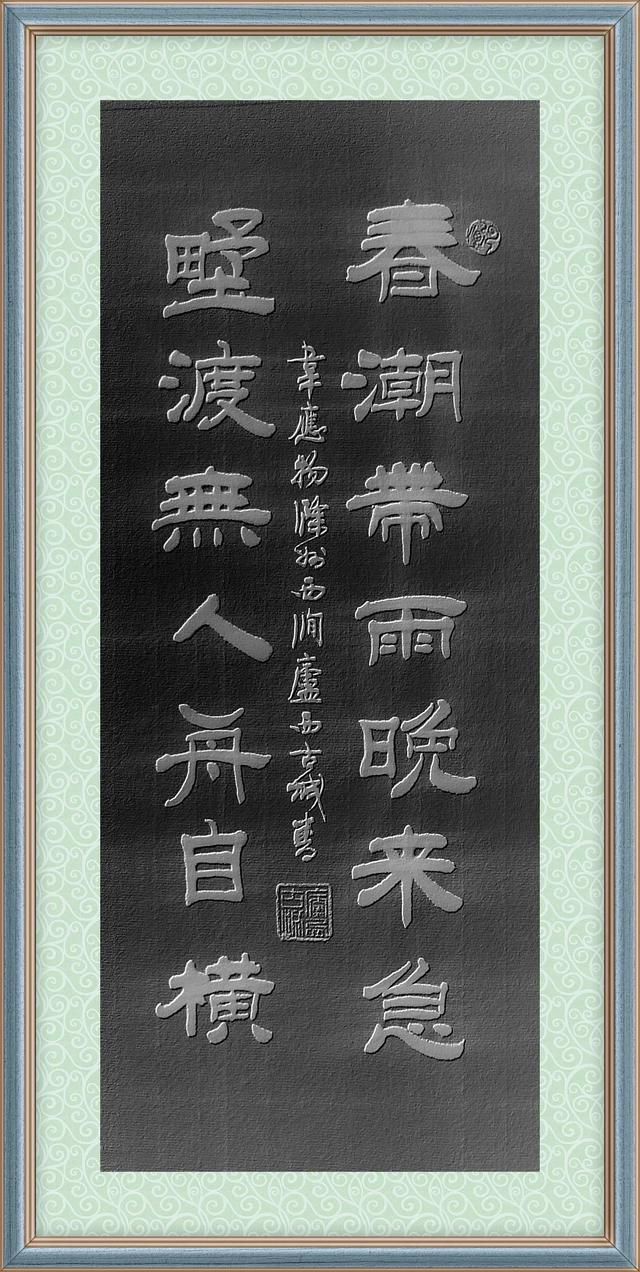 春潮帶雨晚来急
野渡無人舟自横
韋應物滁州西澗廬西古城書